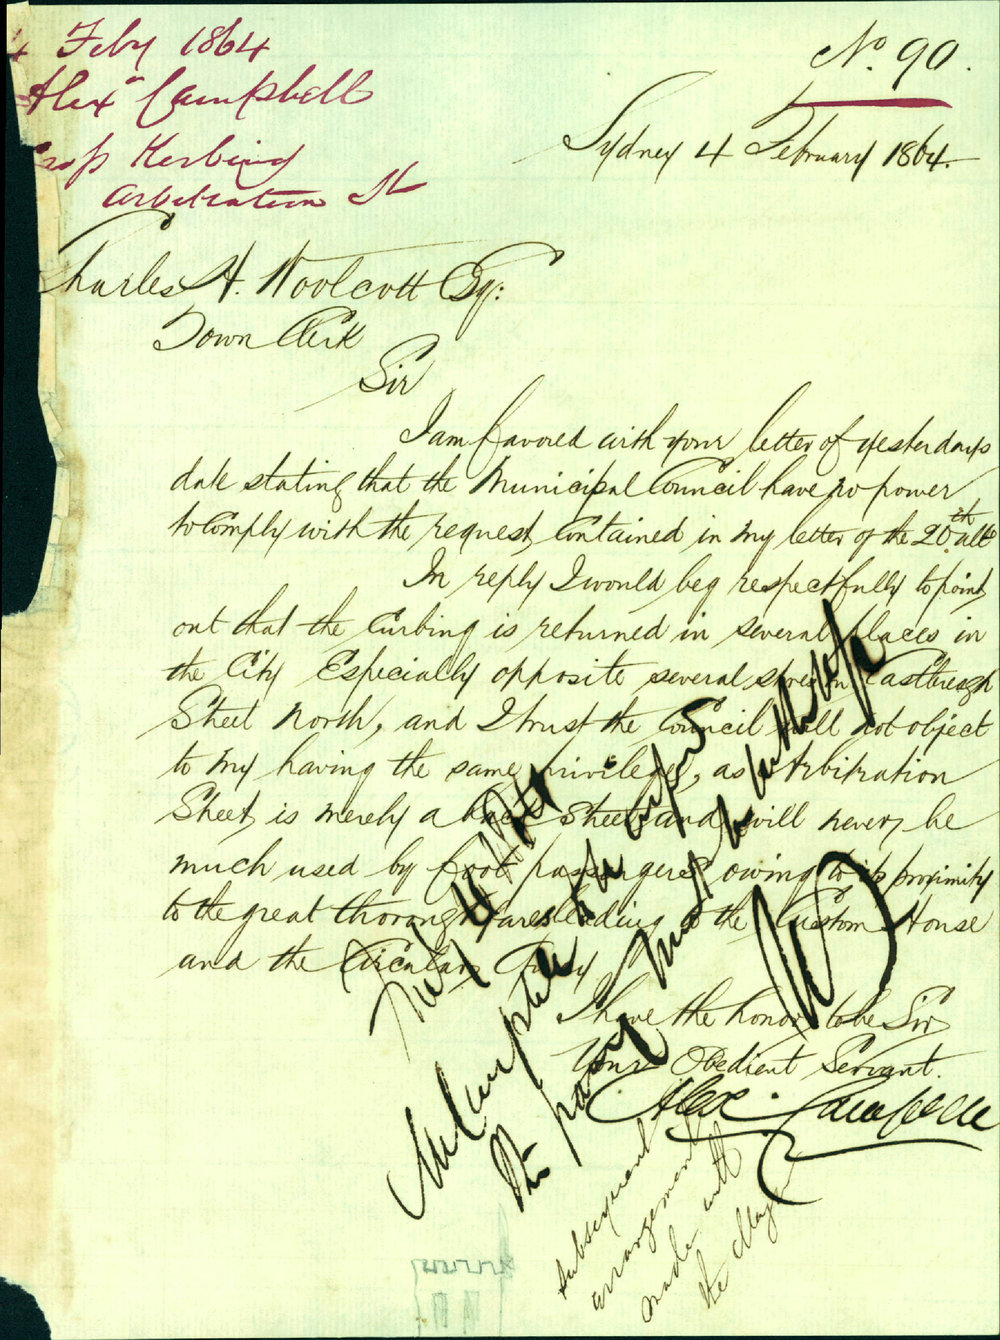 4 Feby 1864
Alexr Campbell
Kerbing
Arbitration St
No. 90.
Sydney 4 February 1864.
Charles H. Woolcott Esq:
Town Clerk
Sir
I am favored with your letter of yesterdays
date stating that the Municipal Council have no power
to comply with the request contained in my letter of the 20th ulto
In reply I would beg respectfully to point
out that the Curbing is returned in several places in
the City Especially opposite several stores in Castlereagh
Street North, and I trust the Council will not object
to my having the same privilege, as Arbitration
Street is merely a back Street and will never be
much used by foot passengers owing to its proximity
to the great thoroughfares leading to the Custom House
and the Circular Quay
I have the honor to be Sir
Your Obedient Servant.
Alex. Campbell
Mr Campbell
Subsequent
arrangement
made with
the Mayor